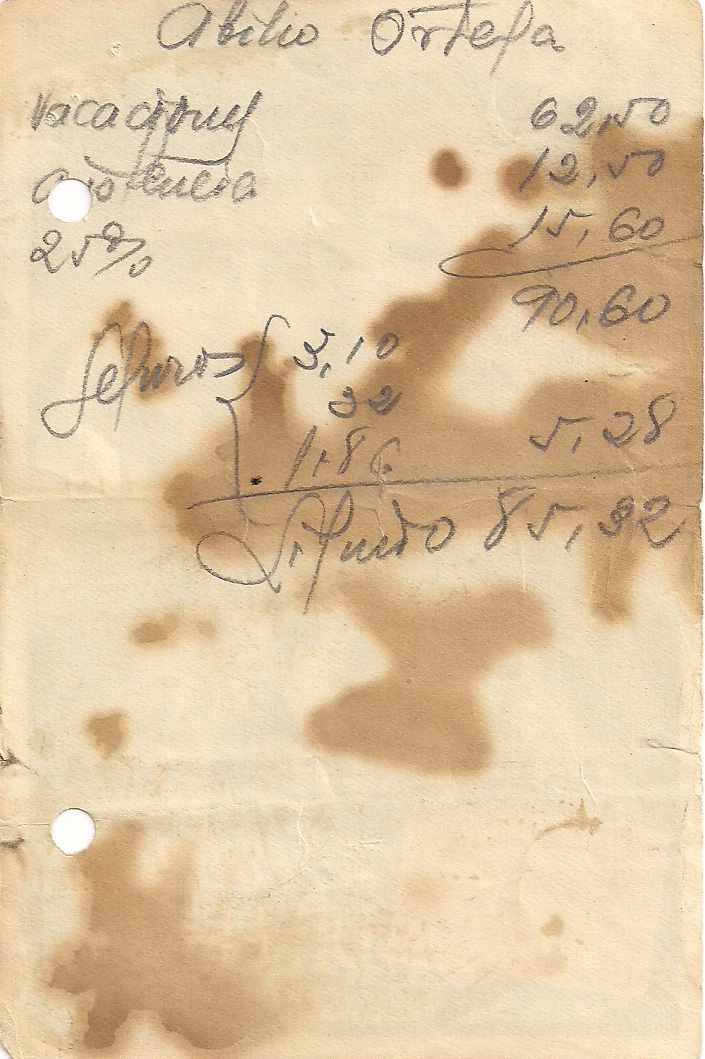 Abilio Ortega
Vacaciones 62,50
asistencia 12,50
25% 15,60
90,60
Seguros { 3,10
32
1,86 5,28
Liquido 85,32